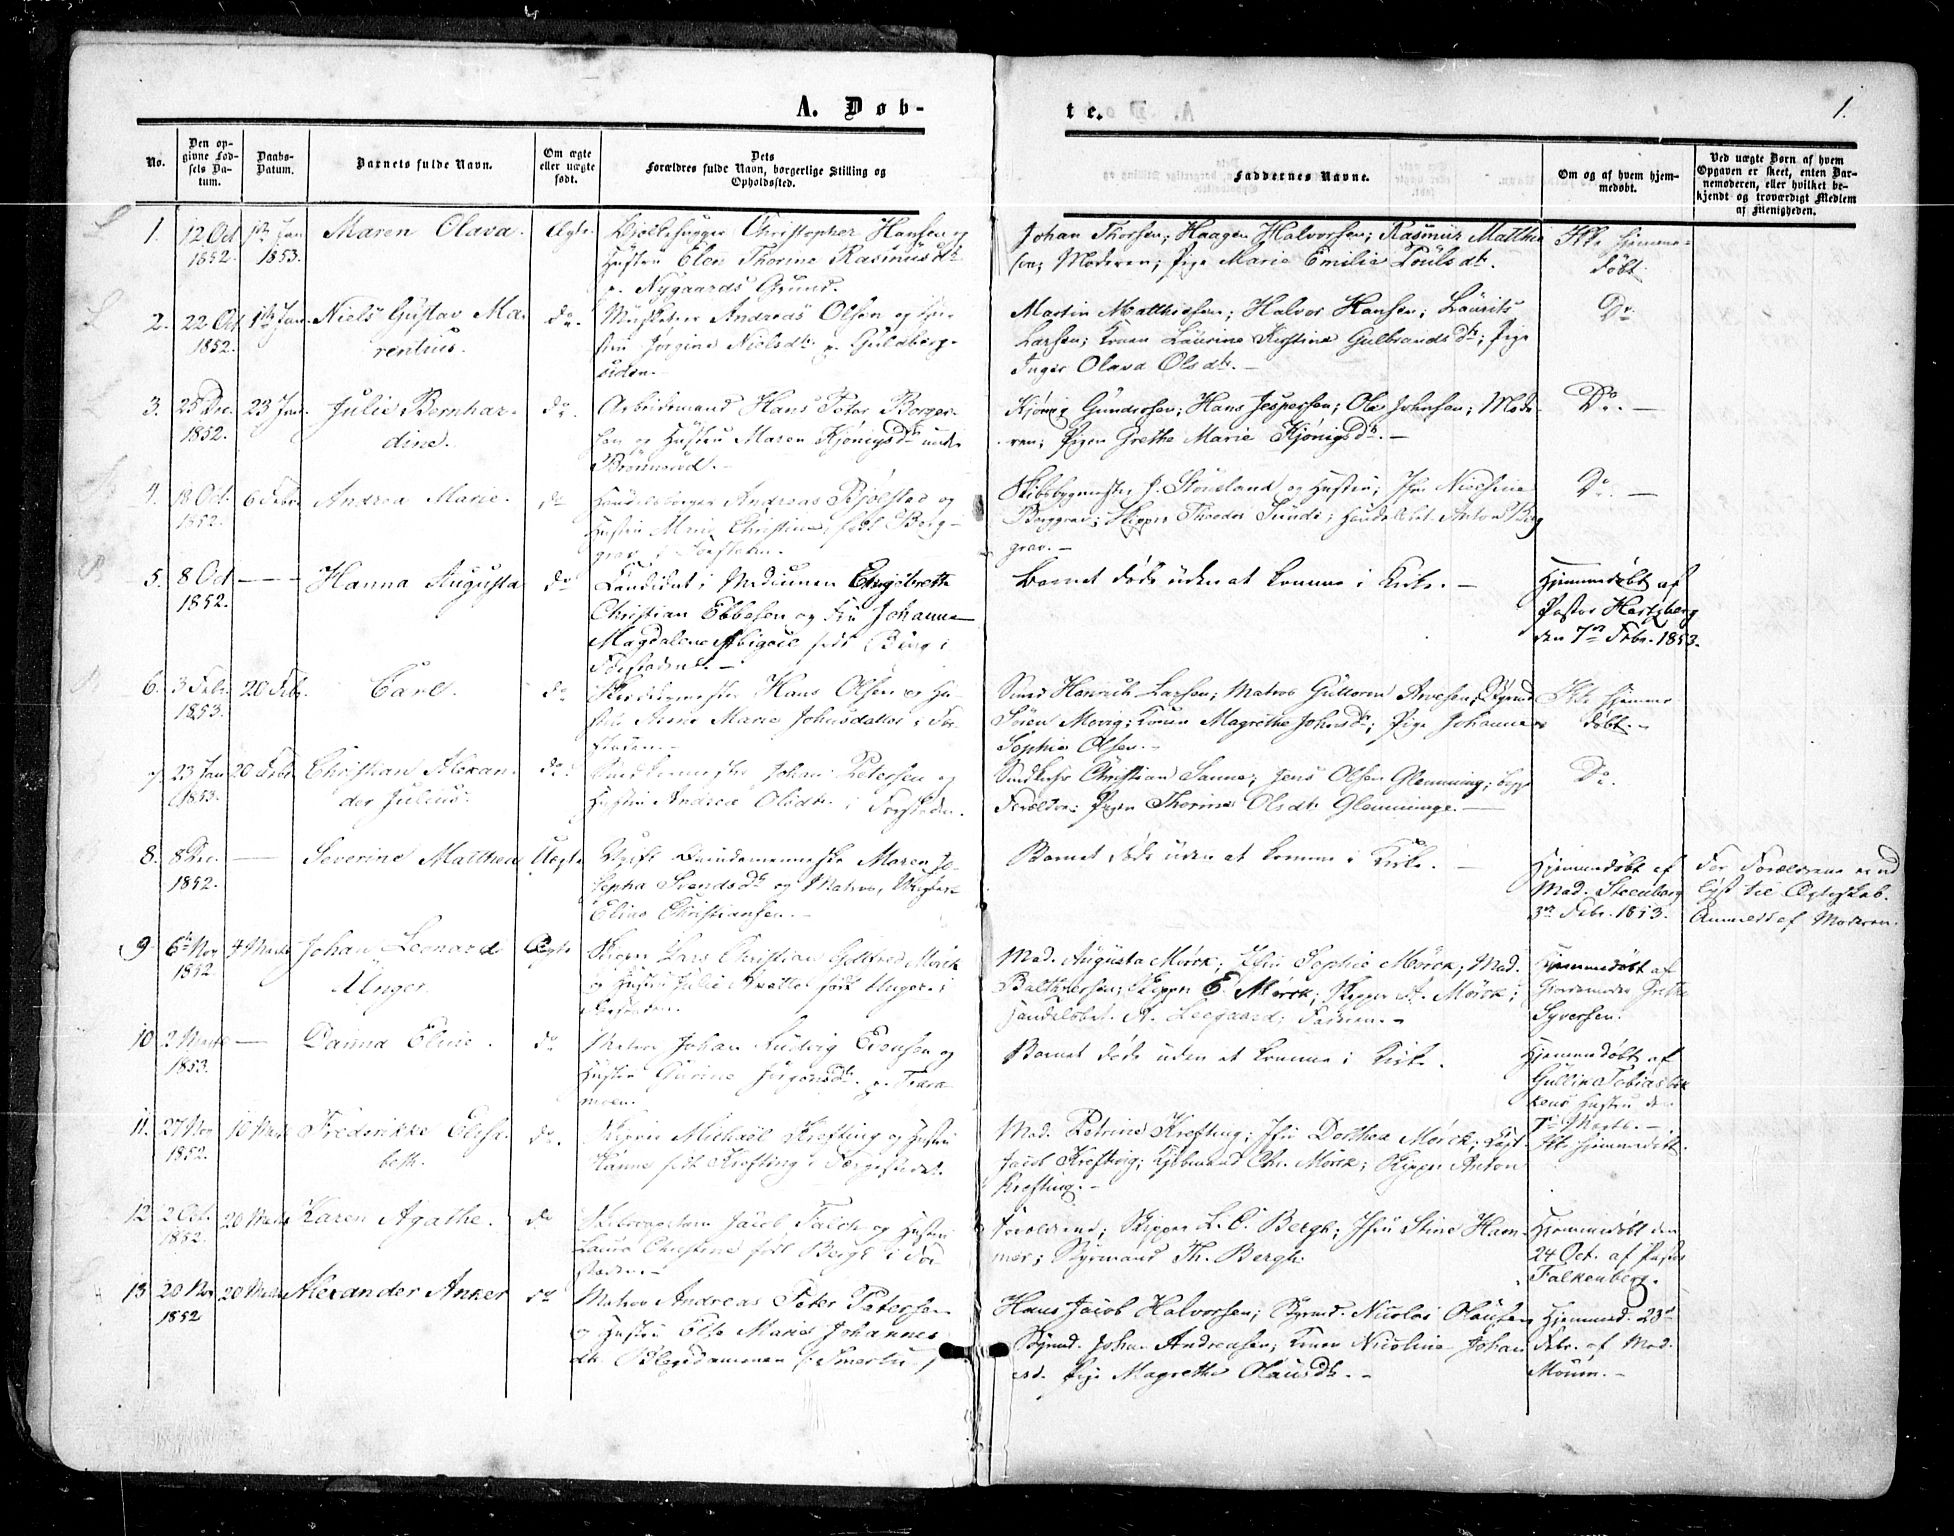 A. Døb-
te.
1.
No.
Den opgivne Fødsels Datum.
Daabs-Datum.
Barnets fulde Navn.
Om ægte eller uægte født.
Dets Forældres fulde Navn, borgerlige Stilling og Opholdssted.
Faddernes Navne.
Om og af hvem hjemmedøbt.
Ved uægte Børn af hvem Opgaven er skeet, enten Barnemoderen, eller hvilket bekjendt og troværdigt Medlem af Menigheden.
1. 12 Oct 1852. 1ste Jan 1853. Maren Olava. Ægte.
Christopher Hansen og
Hustru Elen Thorine Rasmusdr
p. Nygaards Grund.
Johan Thorsen; Haagen Halvorsen; Rasmus Matthi-
sen; Moderen; Pige Marie Emilie Poulsdr.
Ikke hjemme-
døbt.
2. 22 Oct 1852. 1ste Jan Niels Gustav Ma-
rentius. do.
Andreas Olsen og Hu-
stru Jørgine Nielsdr. p. Guldberg-
siden.
Martin Matthisen; Halvor Hansen; Laurits
Larsen; Konen Laurine Kirstine Gulbrandsdr; Pige
Inger Olava Olsdr.
Do.
3. 25 Dec. 1852. 23 Jan. Julie Bernhar-
dine. do.
Arbeidsmand Hans Peter Borger-
sen og Hustru Maren Kjønigsdr under
Kjønig Gundersen; Hans Jespersen; Ole Johnsen; Mode-
ren; Pigen Grethe Marie Kjønigsdr.
Do.
4. 18 Oct. 1852. 6 Febr. Andrea Marie. do
Handelsborger Andreas og
Hustru Marie Christine født Berg-
grav i Forstaden.
Skibsbygmester og Hustru; Jfr
Berggrav; Skipper Theodor; Anton Berg
grav.
Do.
5. 8 Oct 1852. Hanna Augusta do
Candidat i Medicinen Engebreth
Christian Ebbesen og Fru Johanne
Magdalene Abigael født i
Forstaden.
Barnet døde uden at komme i Kirke.
Hjemmedøbt af
Pastor Hertzberg
den 7de Febr. 1853.
6. 3 Febr. 1853. 20 Febr. Carl. do
Hans Olsen og Hu-
stru Anne Marie Johnsdatter i For-
staden.
Smed Henrich Larsen; Matros Guttorm; Styrmd
Søren Movig; Konen Magrethe Johnsdr; Pige Johanne
Sophie Olsen.
Ikke hjemme-
døbt.
7 23 Jan 1853. 20 Febr Christian Alexan-
der Julius. do.
Johan Petersen og
Hustru Andrea Olsdr. i Forstaden.
Christian Sanne; Jens Olsen Glemming; begge
Forældre; Pigen Thorine Olsdr. Glemminge.
Do.
8. 8 Dec. 1852. Severine Matthea Uægte
Ugift Fruindemenneske Maren Jo-
sepha Svendsdr og Matros
Elias Christiansen.
Barnet døde uden at komme i Kirke.
Hjemmedøbt af
Mad. Steenberg
3de Febr. 1853.
For Forældrene er ud
lyst til Ægteskab.
Anmeldt af Moderen.
9. 6te Nov 1852 4 Marts Johan Leonard
Unger. Ægte
Lars Christian Mørch
og Hustru Julie født Unger i
Forstaden.
Mad. Augusta Mørck; Jfru Sophie Mørck; Mad.
Balthzersen; Skipper E. Mørck; Skipper A. Mørck;
Handelsbet. A. Leegaard; Faderen.
Hjemmedøbt af
Jordemoder Grethe
Syversen.
10. 2 Marts 1853. Danna Eline. do
Matros Johan Ludvig Evensen og
Hustru Gurine Jørgensdr.
Barnet døde uden at komme i Kirke.
Hjemmedøbt af
Hustru den
7de Marts.
11. 27 Nov 1852. 10 Marts Frederikke Elisa-
beth. do.
Skipper Michael Krefting og Hustru
Hanne født Krefting i Færgestedet.
Mad. Petrine Krefting; Jfru Dorthea Mørck; Capt.
Jacob Krefting; Kjøbmand Chr. Mørck; Skipper Anton
Krefting.
Ikke hjemmedøbt.
12 2 Oct. 1852. 20 Marts Karen Agathe. do
Jacob Falck og Hustru
Laura Christine født Bergh i For-
staden.
Forældrene; Skipper L. C. Bergh; Jfru Stine Ham-
mer; Styrmand Th. Bergh.
Hjemmedøbt den
24 Oct. af Pastor
Falkenberg.
13 20 Nov 1852 20 Marts Alexander Anker do
Matros Andreas Peter Petersen
og Hustru Else Marie Johannes
dr.
Hans Jacob Halvorsen; Styrmd. Nicolai Olausen
Styrmd. Johan Andreasen; Konen Nicoline Johan
esd. Pige Magrethe Olausdr.
Hjemmed. 23de
Febr. af Mad.
Moum.